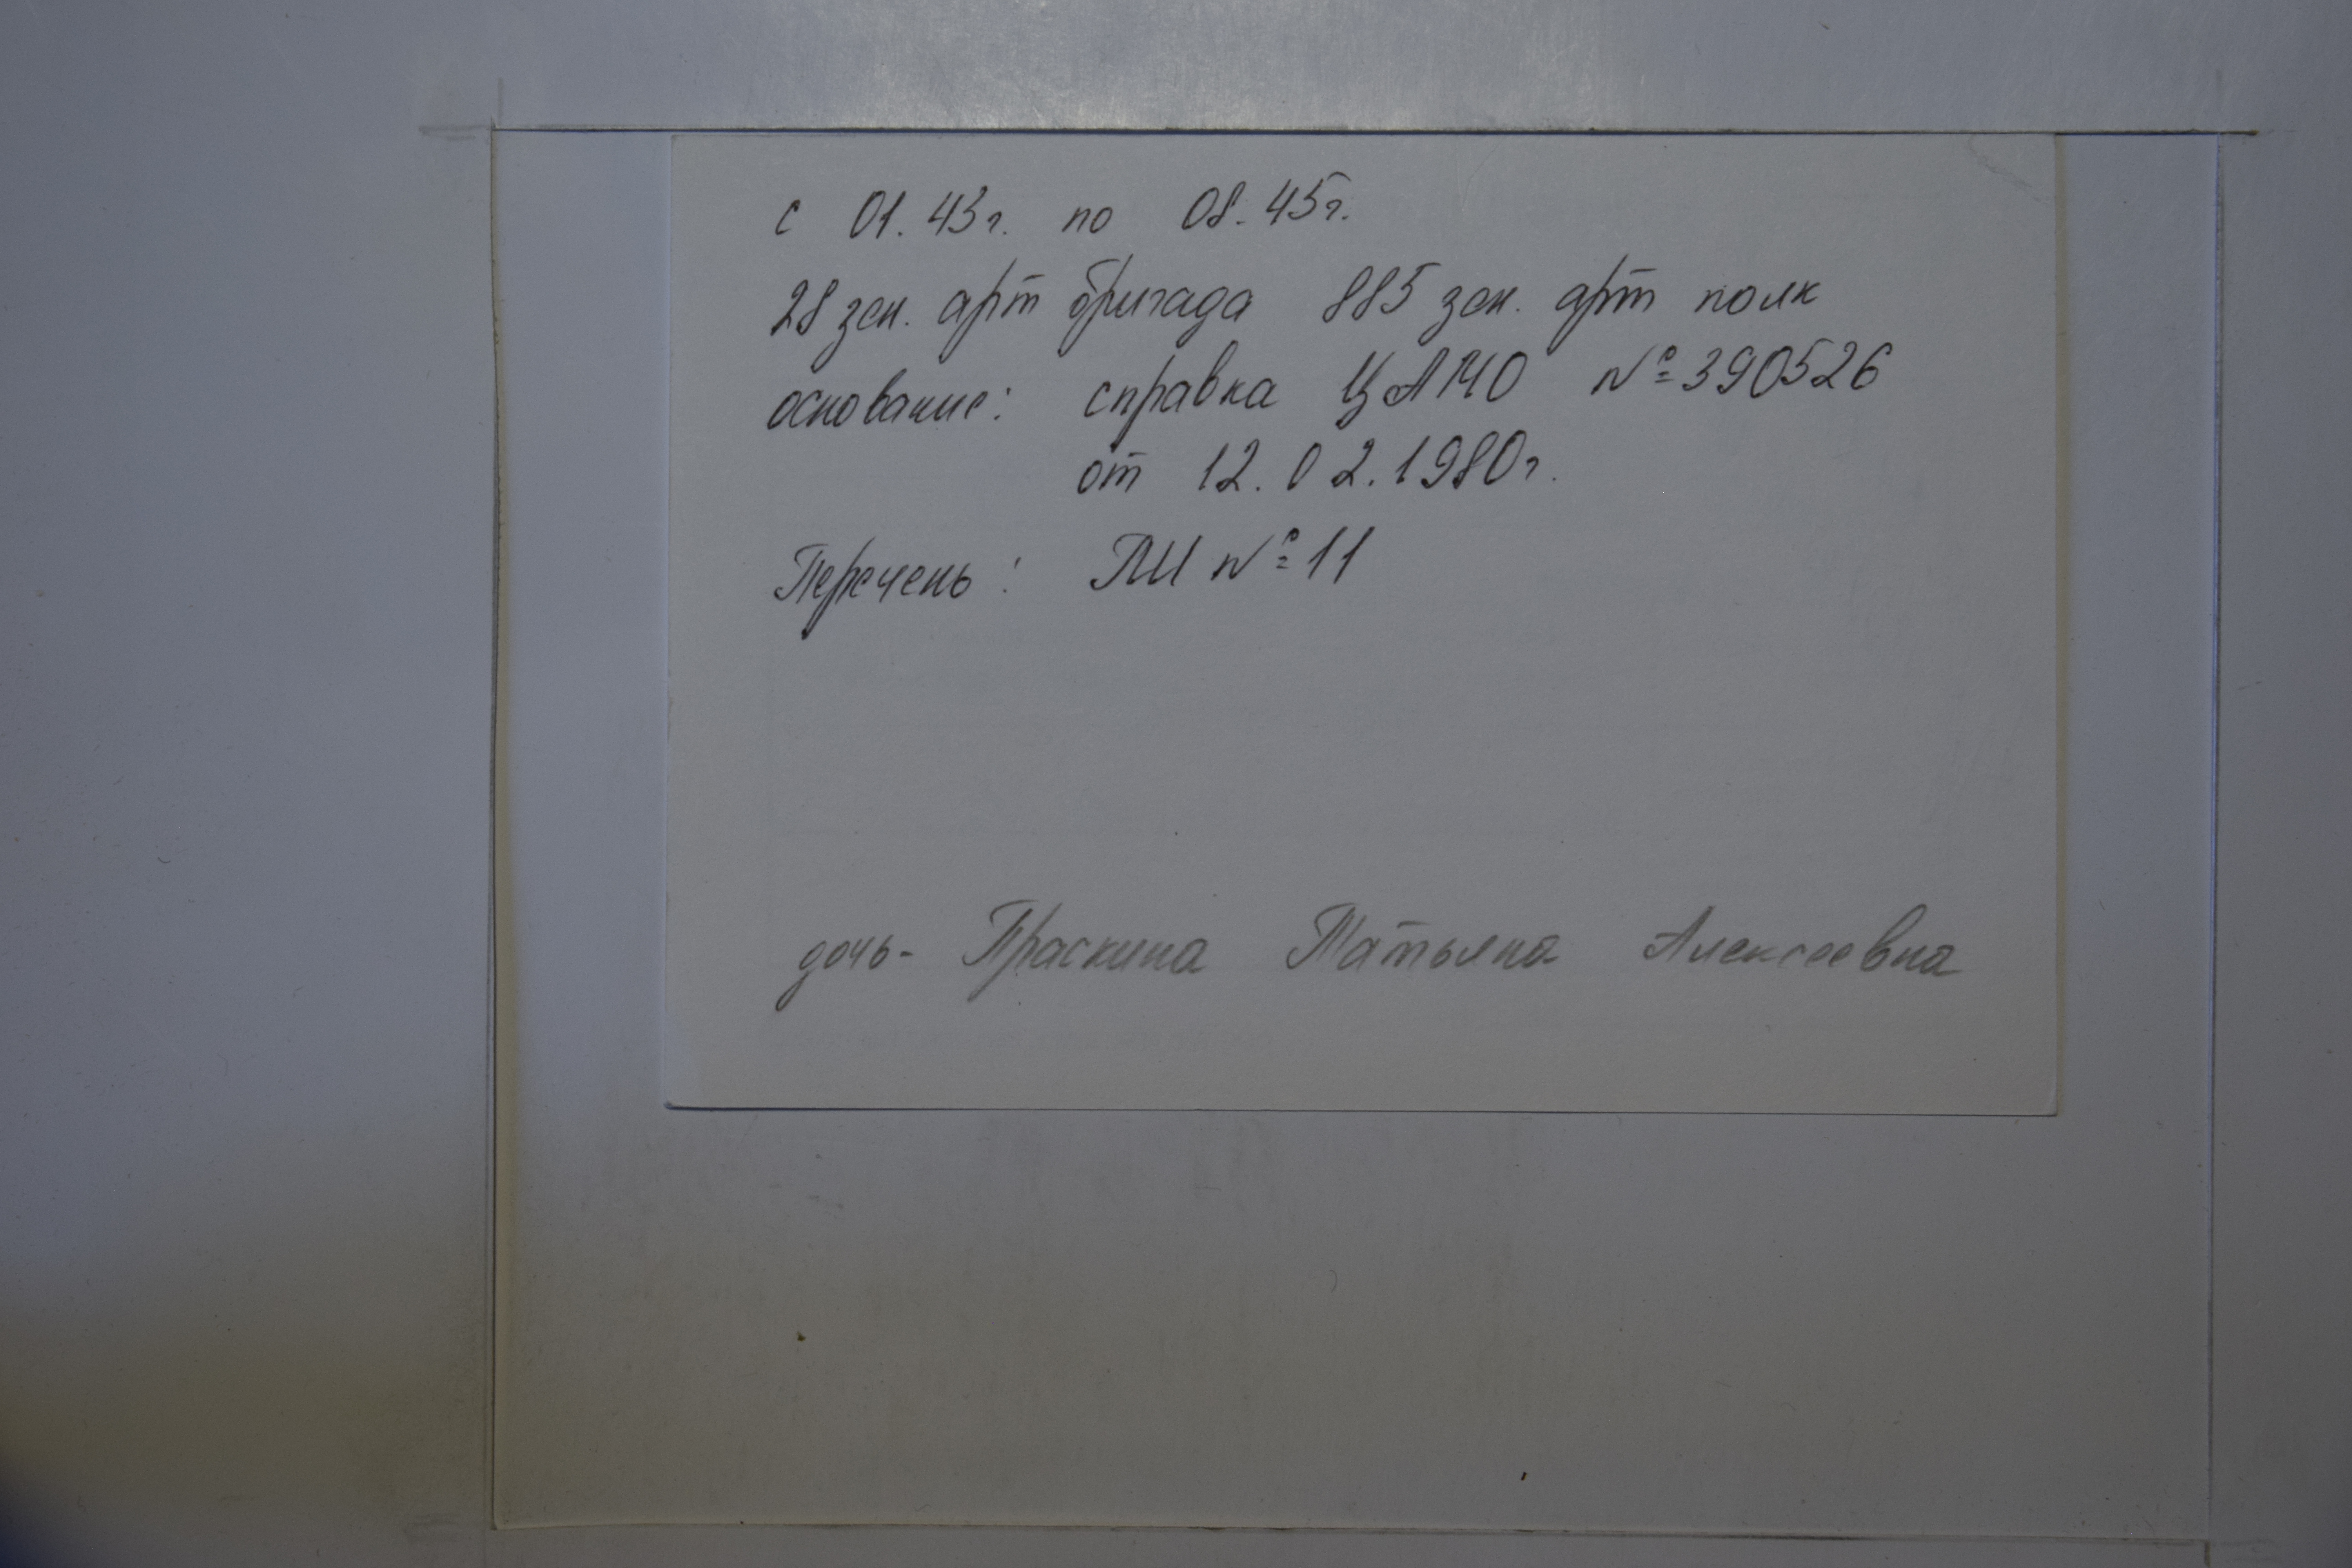 с 01.43г. по 08.45г.
28 зен. арт бригада 885 зен. арт полк
основание: справка ЦАМО №390526
от 12.02.1980г.
Перечень: ПИ №11
дочь- Праскина Татьяна Алексеевна